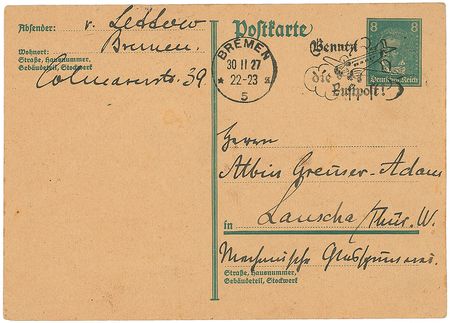 Absender:
v. Lettow
Bremen.
Wohnort:
Straße, Hausnummer,
Gebäudeteil, Stockwerk
Colmarerstr. 39.
Postkarte
BREMEN
30 11 27
22-23
* 5 z
Benutzt
die
Luftpost!
8 8
Deutsches Reich
Herrn
Albin Greiner-Adam
in Lauscha/Thür. W.
Mechanische Glasspinnerei.
Straße, Hausnummer,
Gebäudeteil, Stockwerk